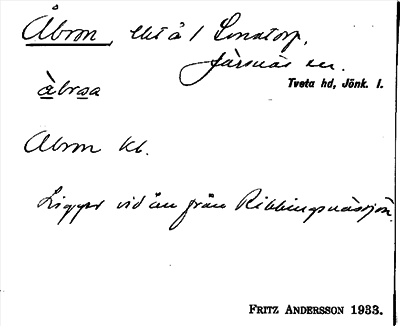 Åbron, litå i Lanstorp,
Järsnäs sn.
Tveta hd, Jönk. l.
àbrọa
Abron kb.
Ligger vid ån från Ribbingsnässjön
FRITZ ANDERSSON 1933.